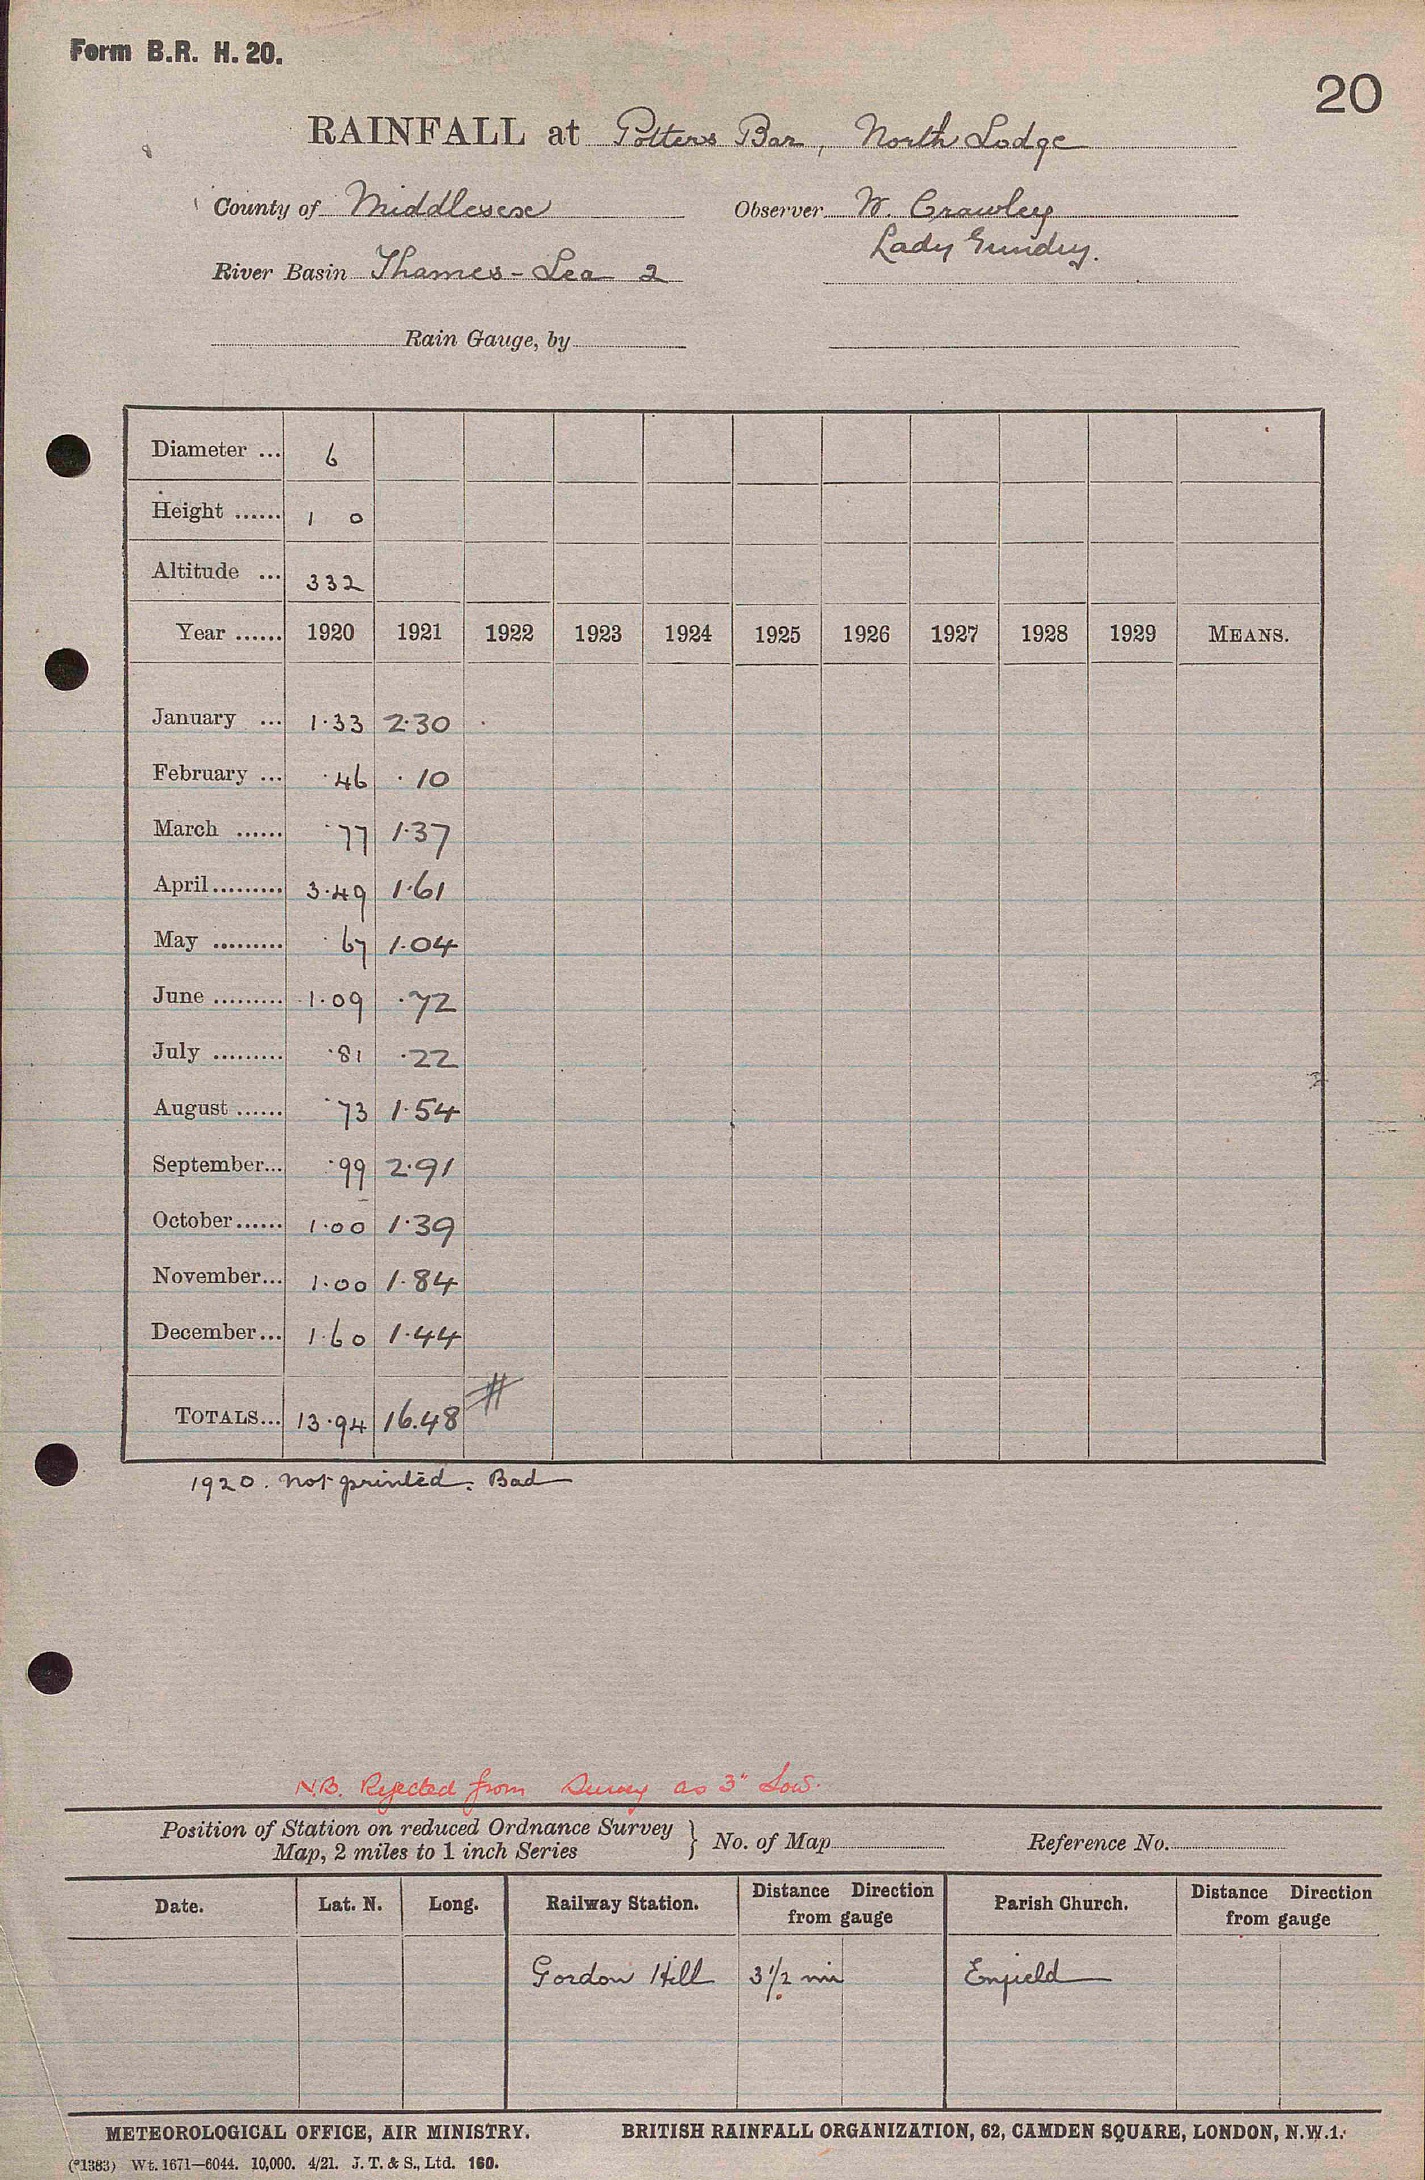 Form B.R. H. 20.
20
RAINFALL at Potters Bar, North Lodge
County of Middlesex Observer W. Crawley
Lady Gundry.
River Basin Thames - Lea 2
Rain Gauge, by
Diameter ... 6
Height ...... 1 0
Altitude ... 332
Year ...... 1920 1921 1922 1923 1924 1925 1926 1927 1928 1929 MEANS.
January ... 1.33 2.30
February ... .46 .10
March ...... .77 1.37
April ......... 3.49 1.61
May ......... .67 1.04
June ......... 1.09 .72
July ......... .81 .22
August ...... .73 1.54
September... .99 2.91
October...... 1.00 1.39
November... 1.00 1.84
December... 1.60 1.44
TOTALS... 13.94 16.48 #
1920. not printed. Bad
N.B. Rejected from Survey as 3" Low.
Position of Station on reduced Ordnance Survey
Map, 2 miles to 1 inch Series } No. of Map Reference No.
Date. Lat. N. Long. Railway Station. Distance Direction from gauge Parish Church. Distance Direction from gauge
Gordon Hill 3 1/2 mi Enfield
METEOROLOGICAL OFFICE, AIR MINISTRY. BRITISH RAINFALL ORGANIZATION, 62, CAMDEN SQUARE, LONDON, N.W.1.
(*1383) Wt. 1671—6044. 10,000. 4/21. J. T. & S., Ltd. 160.